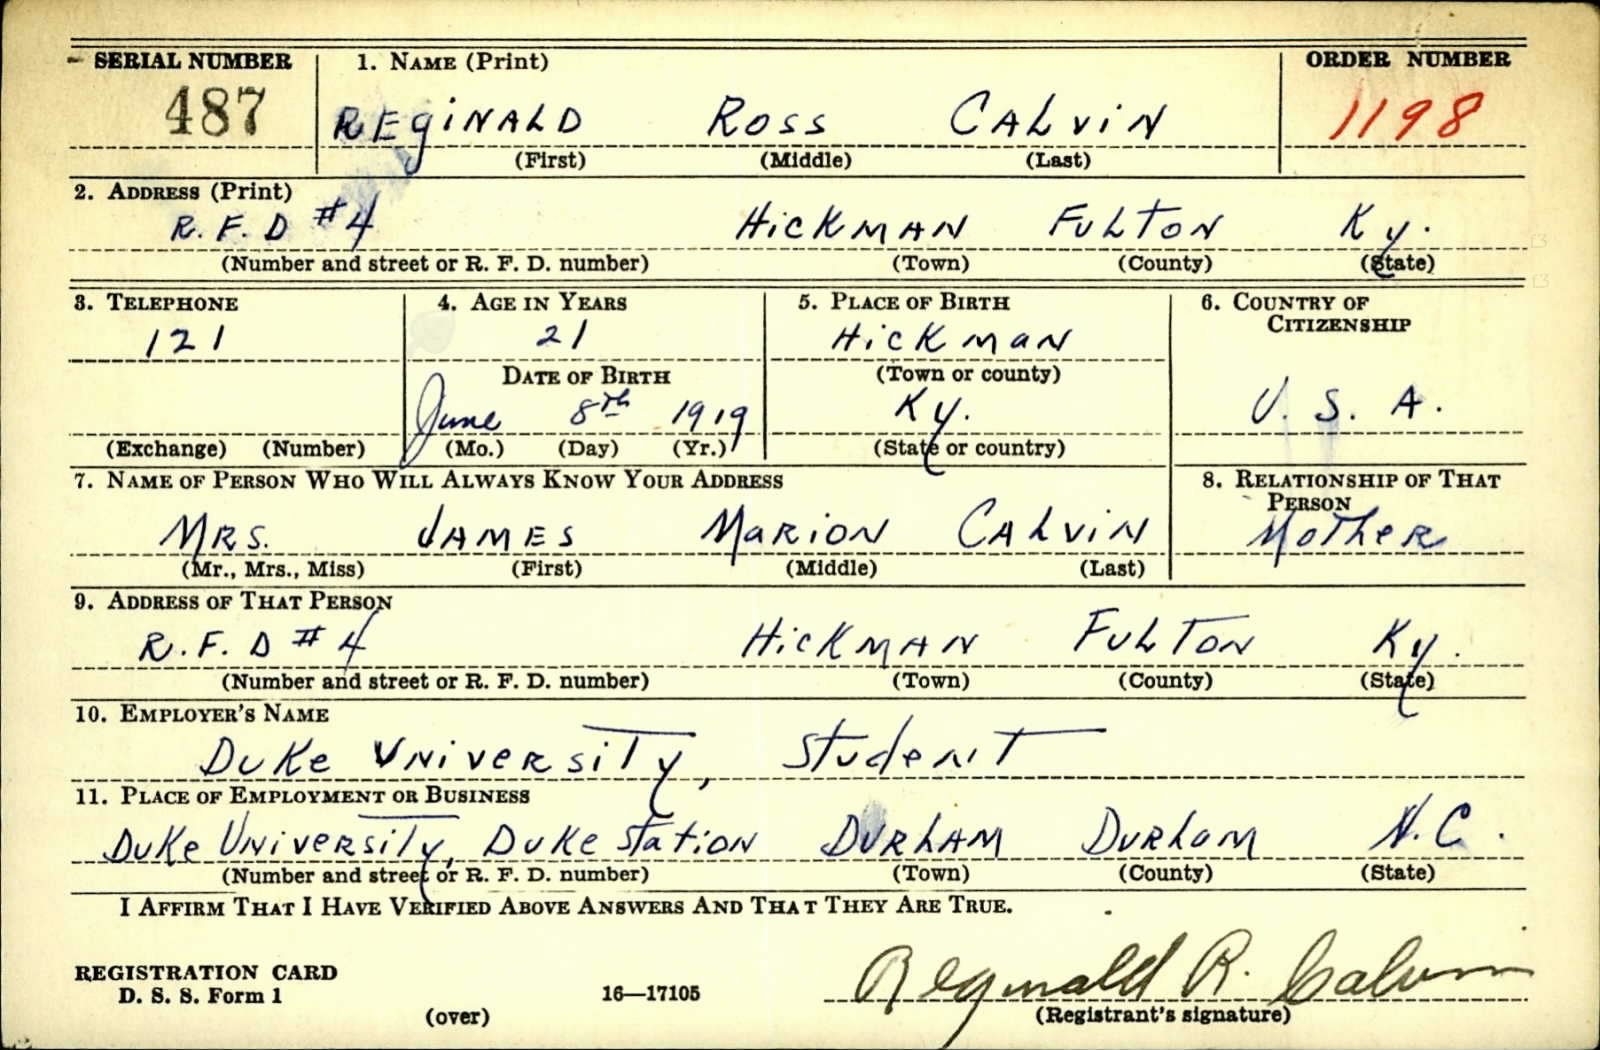 SERIAL NUMBER 1. NAME (Print) ORDER NUMBER
487 REGINALD ROSS CALVIN 1198
(First) (Middle) (Last)
2. ADDRESS (Print)
R. F. D #4 HICKMAN FULTON Ky.
(Number and street or R. F. D. number) (Town) (County) (State)
3. TELEPHONE 4. AGE IN YEARS 5. PLACE OF BIRTH 6. COUNTRY OF CITIZENSHIP
121 21 HICKMAN
DATE OF BIRTH (Town or county)
June 8th 1919 Ky. U. S. A.
(Exchange) (Number) (Mo.) (Day) (Yr.) (State or country)
7. NAME OF PERSON WHO WILL ALWAYS KNOW YOUR ADDRESS 8. RELATIONSHIP OF THAT PERSON
MRS. JAMES MARION CALVIN MOTHER
(Mr., Mrs., Miss) (First) (Middle) (Last)
9. ADDRESS OF THAT PERSON
R. F. D #4 HICKMAN FULTON Ky.
(Number and street or R. F. D. number) (Town) (County) (State)
10. EMPLOYER'S NAME
DUKE UNIVERSITY, STUDENT
11. PLACE OF EMPLOYMENT OR BUSINESS
DUKE UNIVERSITY, DUKE STATION DURHAM DURHAM N. C.
(Number and street or R. F. D. number) (Town) (County) (State)
I AFFIRM THAT I HAVE VERIFIED ABOVE ANSWERS AND THAT THEY ARE TRUE.
REGISTRATION CARD
D. S. S. Form 1 16—17105 Reginald R. Calvin
(over) (Registrant's signature)